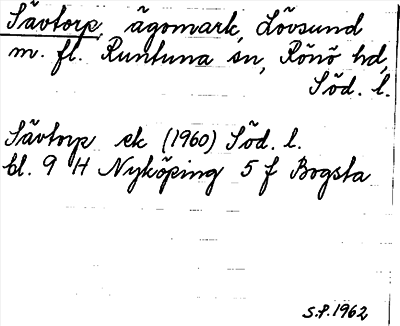 Sävtorp, ägomark, Lövsund
m. fl. Runtuna sn, Rönö hd,
Söd. l.
Sävtorp ek (1960) Söd. l.
bl. 9 H Nyköping 5 f Bogsta
S.P. 1962